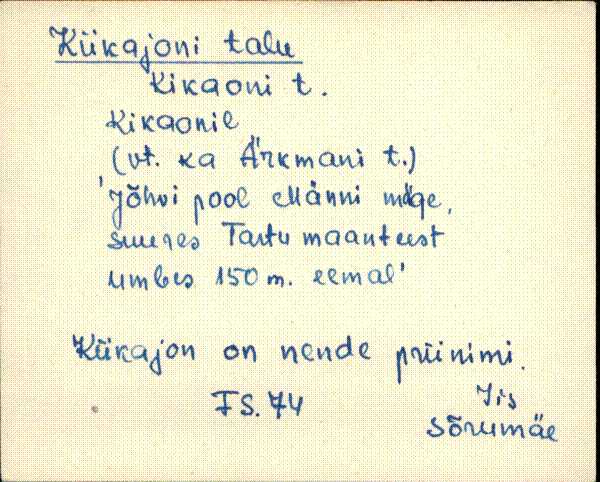 Kükajoni talu
kikaoni t.
kikaonil
(vt. ka Ärkmani t.)
'Jõhvi pool Männi mäge,
suures Tartu maanteest
umbes 150 m. eemal'
Kükajon on nende priinimi.
FS. 74
Iis
Sõrumäe